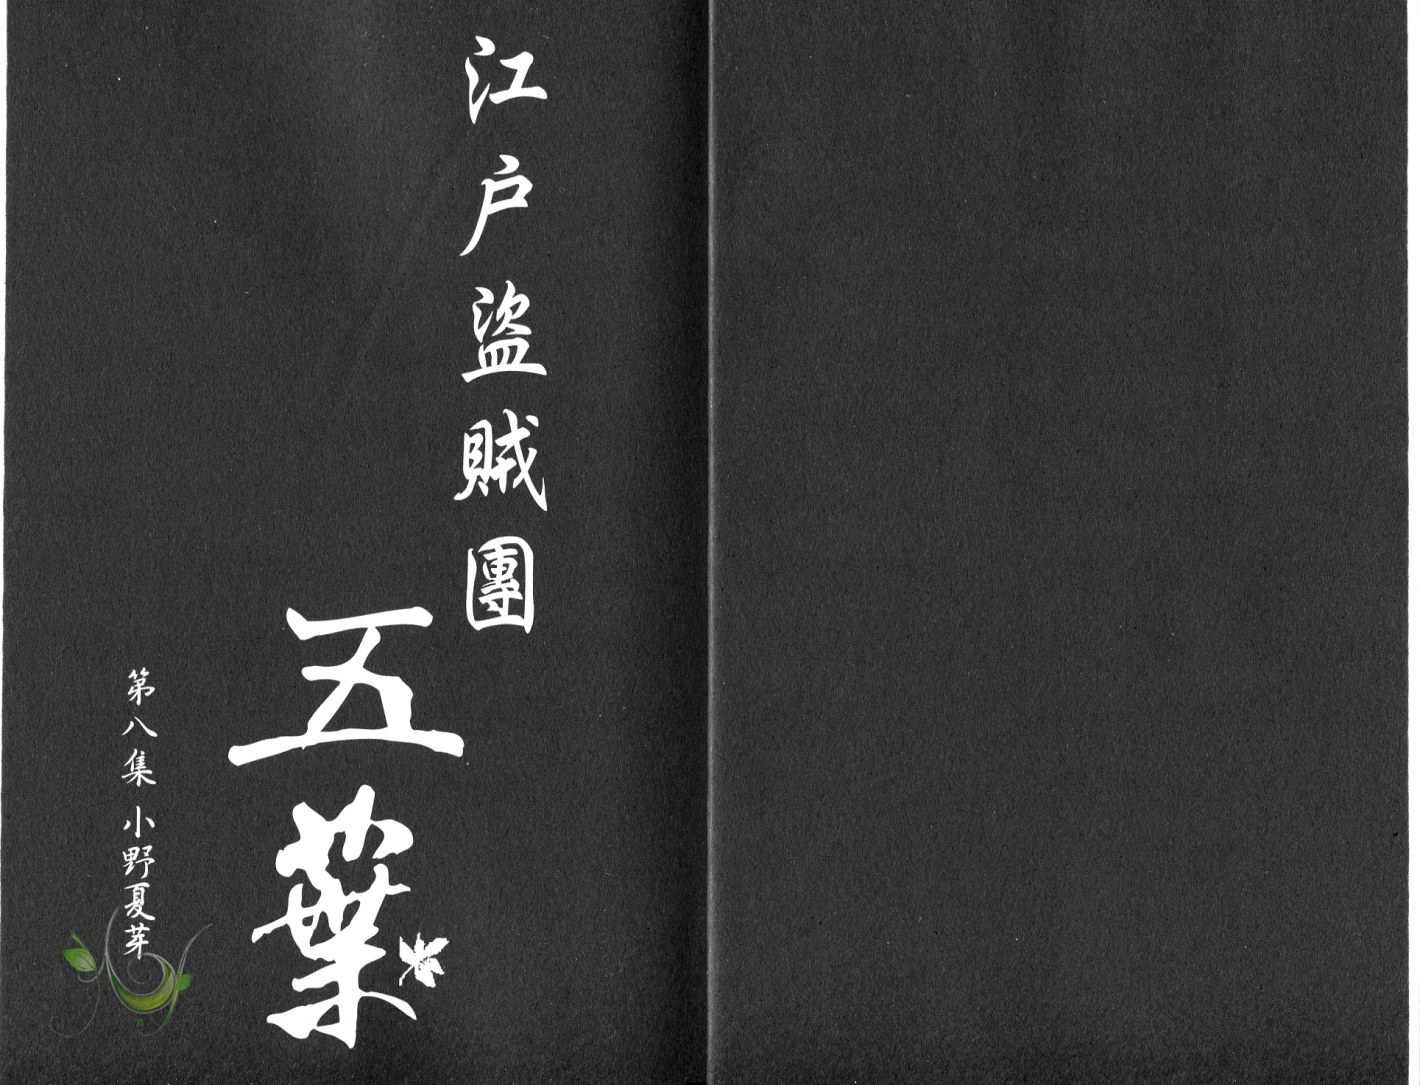 江戸盜賊團
五葉
第八集 小野夏芽